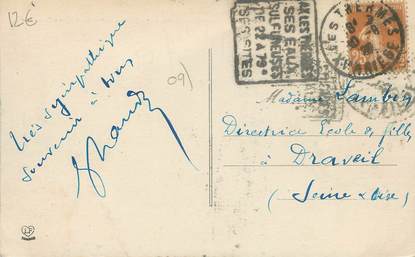 12€
AX LES THERMES
SES EAUX
SULFUREUSES
DE 22 A 78°
SES SITES
AX-LES-THERMES
ARIEGE
09)
très sympathique
souvenir à tous
Madame Lambin
Directrice Ecole de filles
à Draveil
(Seine & Oise)